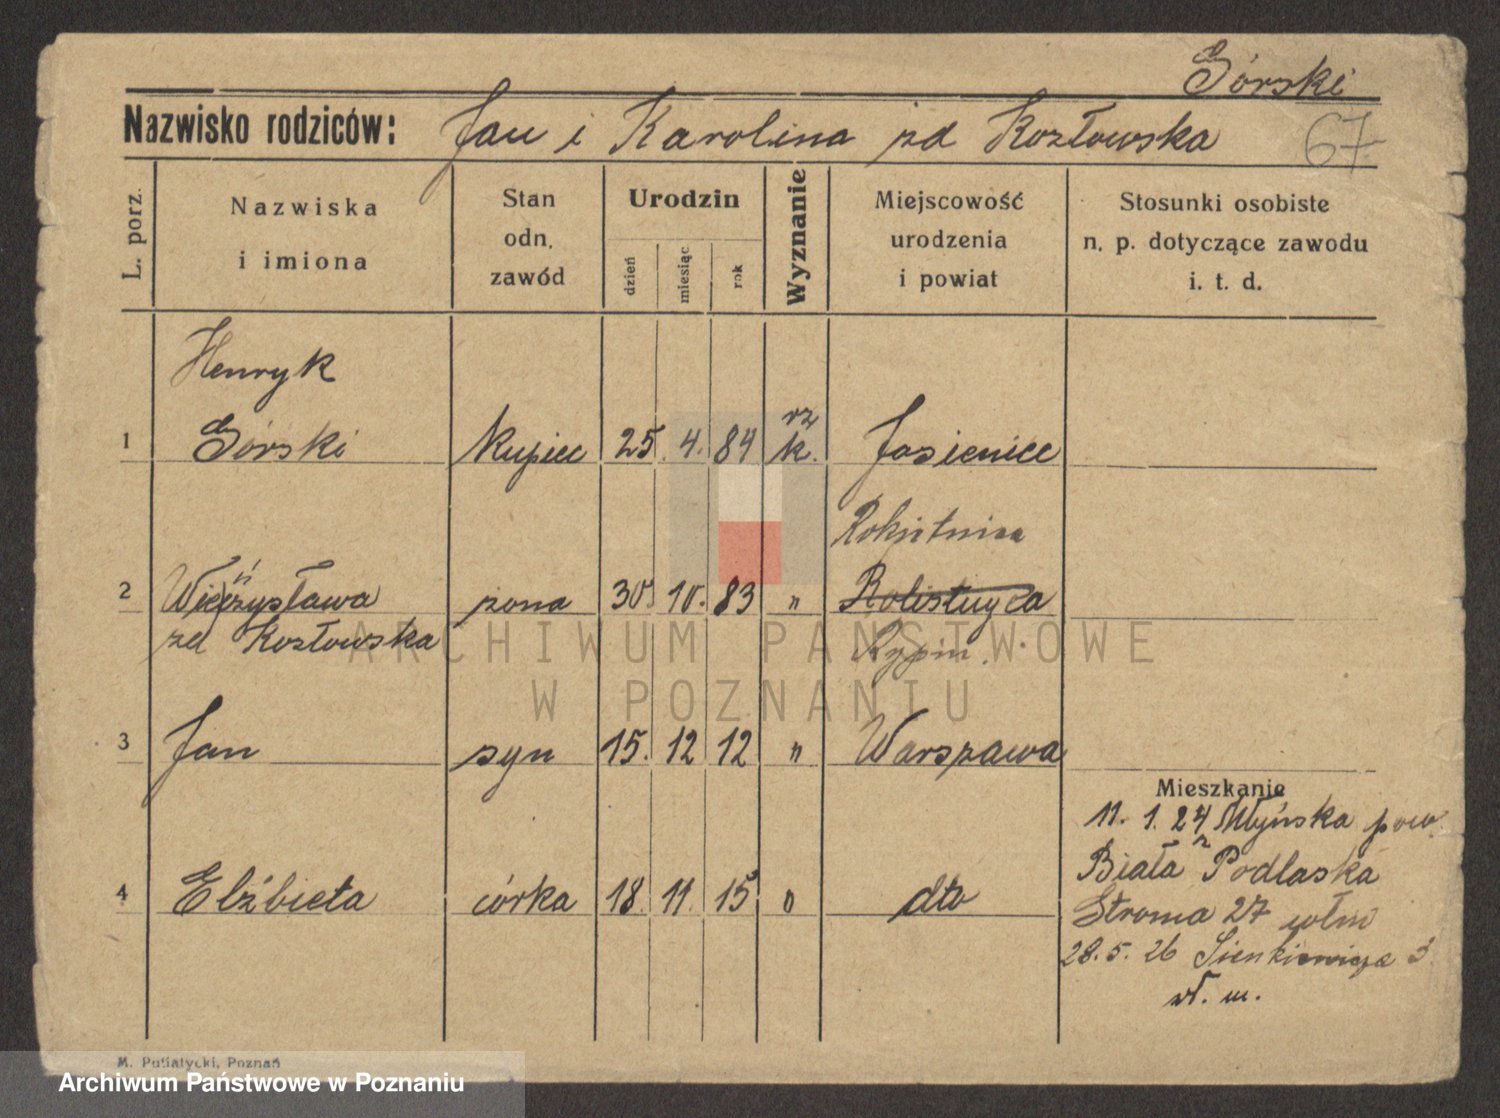 Górski
Nazwisko rodziców: Jan i Karolina zd Kozłowska 67
L. porz.
Nazwiska
i imiona
Stan
odn.
zawód
Urodzin
dzień
miesiąc
rok
Wyznanie
Miejscowość
urodzenia
i powiat
Stosunki osobiste
n. p. dotyczące zawodu
i. t. d.
Henryk
rz
1 Górski kupiec 25. 4. 84 k. Jasienice
Rokitnica
2 żona 30. 10. 83 "
zd Kozłowska Rypin.
3 Jan syn 15. 12 12 " Warszawa
Mieszkanie
11. 1. 24 Młyńska pow.
Biała Podlaska
4 Elżbieta córka 18. 11. 15 " dto
Stroma 27 włm
28. 5. 26 Sienkiewicza 3
wł. m.
M. Putiatycki, Poznań
ARCHIWUM PAŃSTWOWE
W POZNANIU
Archiwum Państwowe w Poznaniu